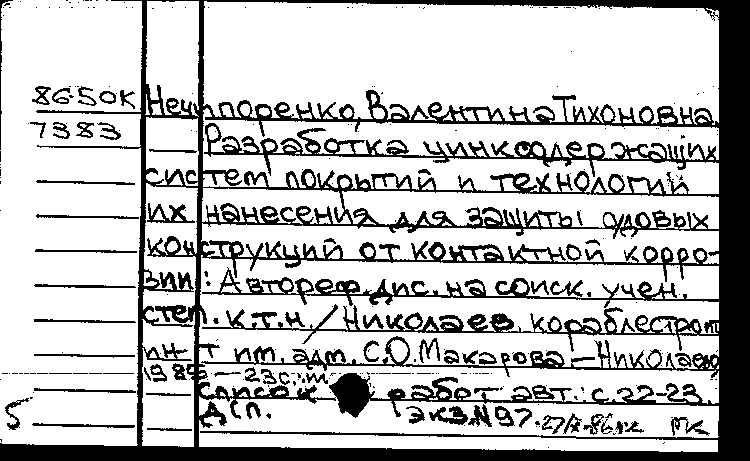 86-50К Нечипоренко, Валентина Тихоновна.
7383 Разработка цинксодержащих
систем покрытий и технологий
их нанесения для защиты судовых
конструкций от контактной корро-
зии: Автореф. дис. на соиск. учен.
степ. к.т.н. / Николаев. кораблестроит
ин-т им. адм. С.О. Макарова — Николаев,
1985 — 23 с.
список работ авт.: с. 22-23.
5 Дсп. экз. N 97.